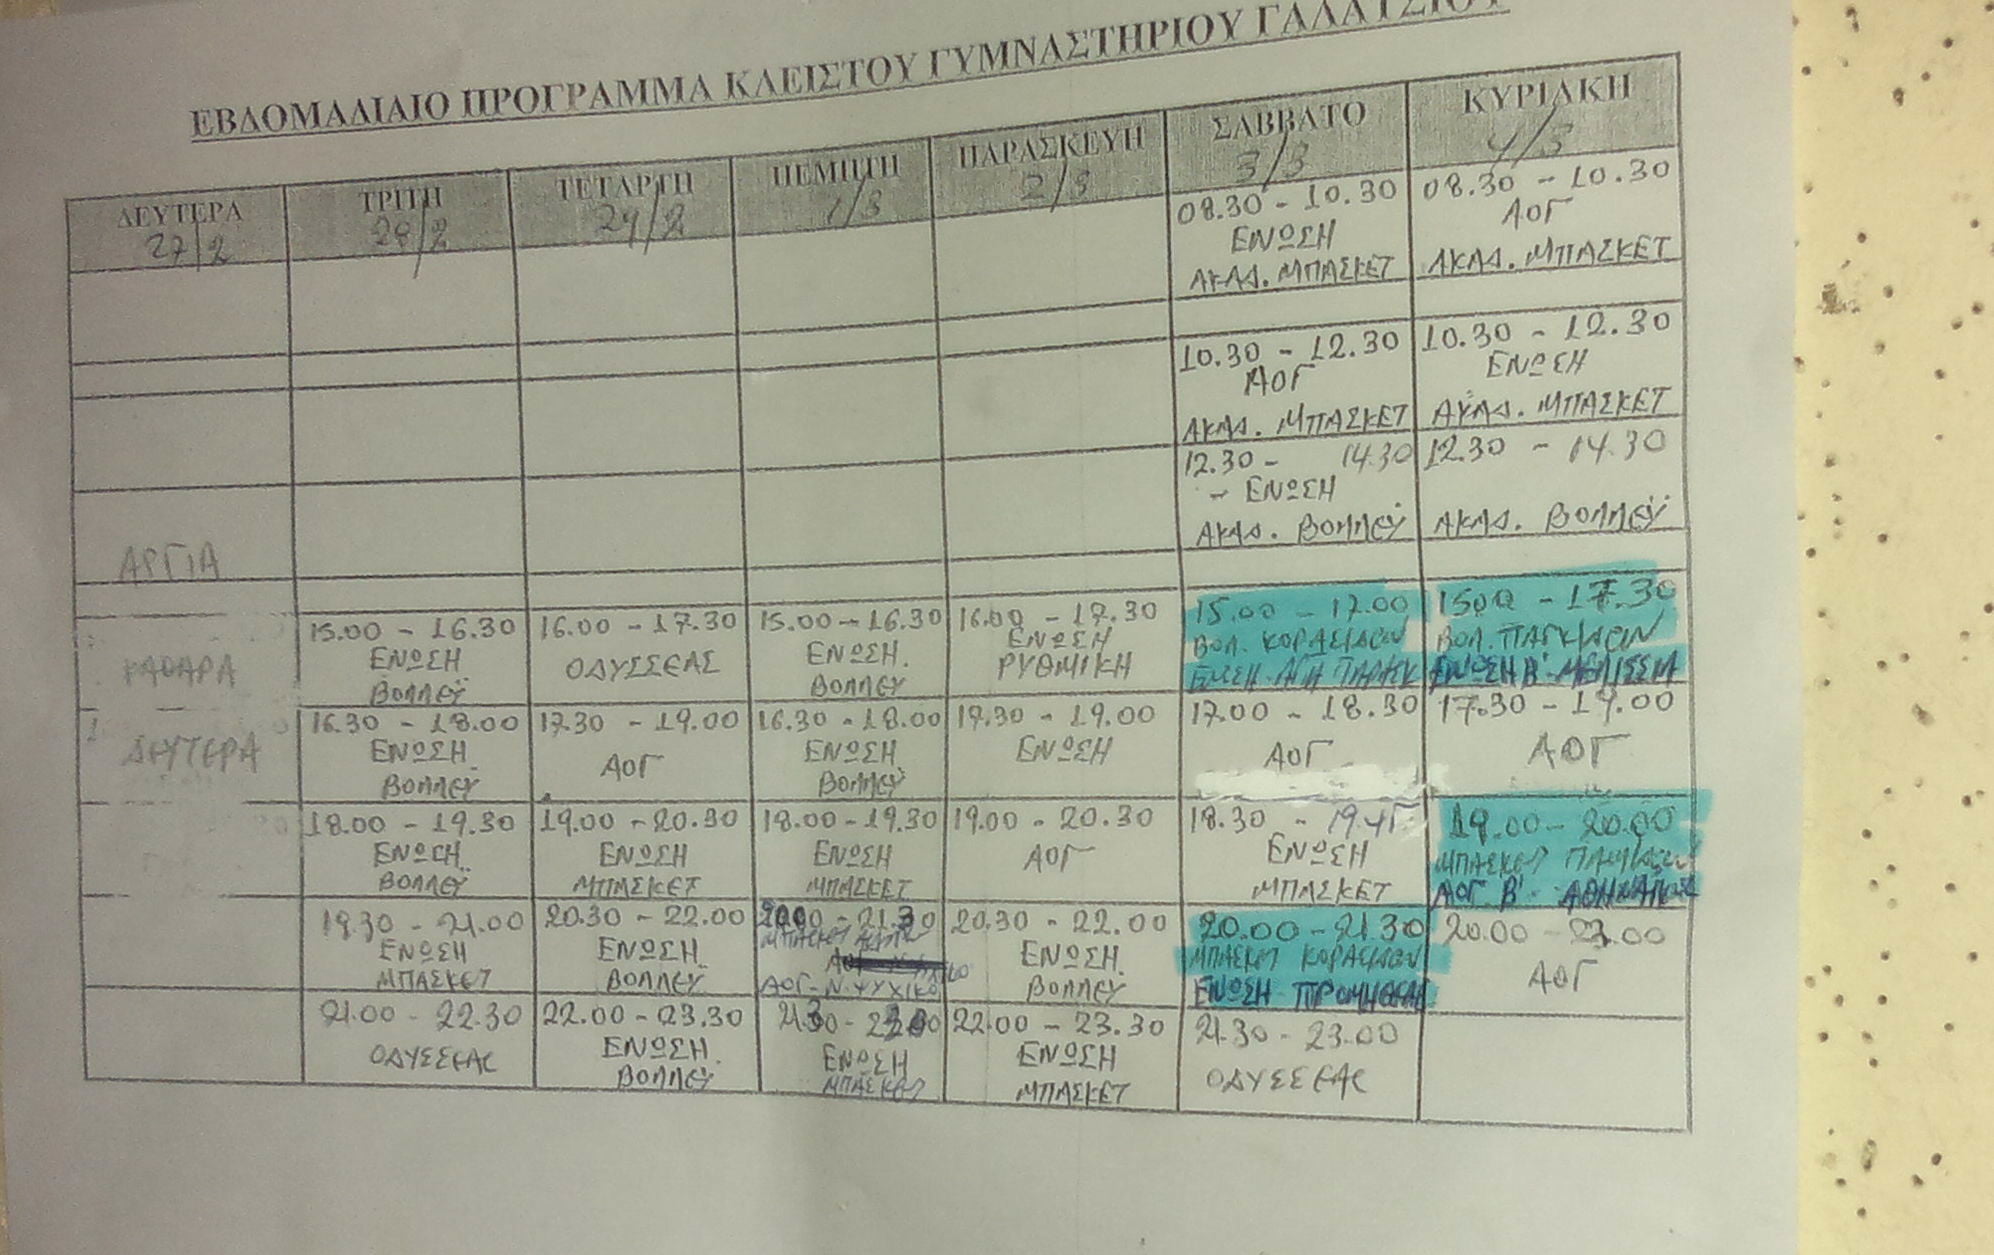 ΕΒΔΟΜΑΔΙΑΙΟ ΠΡΟΓΡΑΜΜΑ ΚΛΕΙΣΤΟΥ ΓΥΜΝΑΣΤΗΡΙΟΥ ΓΑΛΑΤΣΙΟΥ
ΔΕΥΤΕΡΑ
27/2
ΑΡΓΙΑ
ΚΑΘΑΡΑ
ΔΕΥΤΕΡΑ
ΤΡΙΤΗ
28/2
15.00 - 16.30
ΕΝΩΣΗ
ΒΟΛΛΕΫ
16.30 - 18.00
ΕΝΩΣΗ
ΒΟΛΛΕΫ
18.00 - 19.30
ΕΝΩΣΗ
ΒΟΛΛΕΫ
19.30 - 21.00
ΕΝΩΣΗ
ΜΠΑΣΚΕΤ
21.00 - 22.30
ΟΔΥΣΣΕΑΣ
ΤΕΤΑΡΤΗ
29/2
16.00 - 17.30
ΟΔΥΣΣΕΑΣ
17.30 - 19.00
ΑΟΓ
19.00 - 20.30
ΕΝΩΣΗ
ΜΠΑΣΚΕΤ
20.30 - 22.00
ΕΝΩΣΗ
ΒΟΛΛΕΫ
22.00 - 23.30
ΕΝΩΣΗ
ΒΟΛΛΕΫ
ΠΕΜΠΤΗ
1/3
15.00 - 16.30
ΕΝΩΣΗ
ΒΟΛΛΕΫ
16.30 - 18.00
ΕΝΩΣΗ
ΒΟΛΛΕΫ
18.00 - 19.30
ΕΝΩΣΗ
ΜΠΑΣΚΕΤ
ΜΠΑΣΚΕΤ
ΑΟΓ - Ν. ΨΥΧΙΚΟ
ΕΝΩΣΗ
ΜΠΑΣΚΕΤ
ΠΑΡΑΣΚΕΥΗ
2/3
16.00 - 17.30
ΕΝΩΣΗ
ΡΥΘΜΙΚΗ
17.30 - 19.00
ΕΝΩΣΗ
19.00 - 20.30
ΑΟΓ
20.30 - 22.00
ΕΝΩΣΗ
ΒΟΛΛΕΫ
22.00 - 23.30
ΕΝΩΣΗ
ΜΠΑΣΚΕΤ
ΣΑΒΒΑΤΟ
3/3
08.30 - 10.30
ΕΝΩΣΗ
ΑΚΑΔ. ΜΠΑΣΚΕΤ
10.30 - 12.30
ΑΟΓ
ΑΚΑΔ. ΜΠΑΣΚΕΤ
12.30 - 14.30
- ΕΝΩΣΗ
ΑΚΑΔ. ΒΟΛΛΕΫ
15.00 - 17.00
ΒΟΛ. ΚΟΡΑΣΙΔΩΝ
ΕΝΩΣΗ - ΑΓΙΑ ΠΑΡΑΣΚ
17.00 - 18.30
ΑΟΓ
18.30 - 19.45
ΕΝΩΣΗ
ΜΠΑΣΚΕΤ
20.00 - 21.30
ΜΠΑΣΚΕΤ ΚΟΡΑΣΙΔΩΝ
ΕΝΩΣΗ - ΠΡΟΜΗΘΕΑΣ
21.30 - 23.00
ΟΔΥΣΣΕΑΣ
ΚΥΡΙΑΚΗ
4/3
08.30 - 10.30
ΑΟΓ
ΑΚΑΔ. ΜΠΑΣΚΕΤ
10.30 - 12.30
ΕΝΩΣΗ
ΑΚΑΔ. ΜΠΑΣΚΕΤ
12.30 - 14.30
ΑΚΑΔ. ΒΟΛΛΕΫ
15.00 - 17.30
ΒΟΛ. ΠΑΓΚ/ΔΩΝ
ΕΝΩΣΗ Β' - ΜΕΛΙΣΣΙΑ
17.30 - 19.00
ΑΟΓ
19.00 - 20.00
ΜΠΑΣΚΕΤ
ΑΟΓ Β' -
20.00 - 23.00
ΑΟΓ